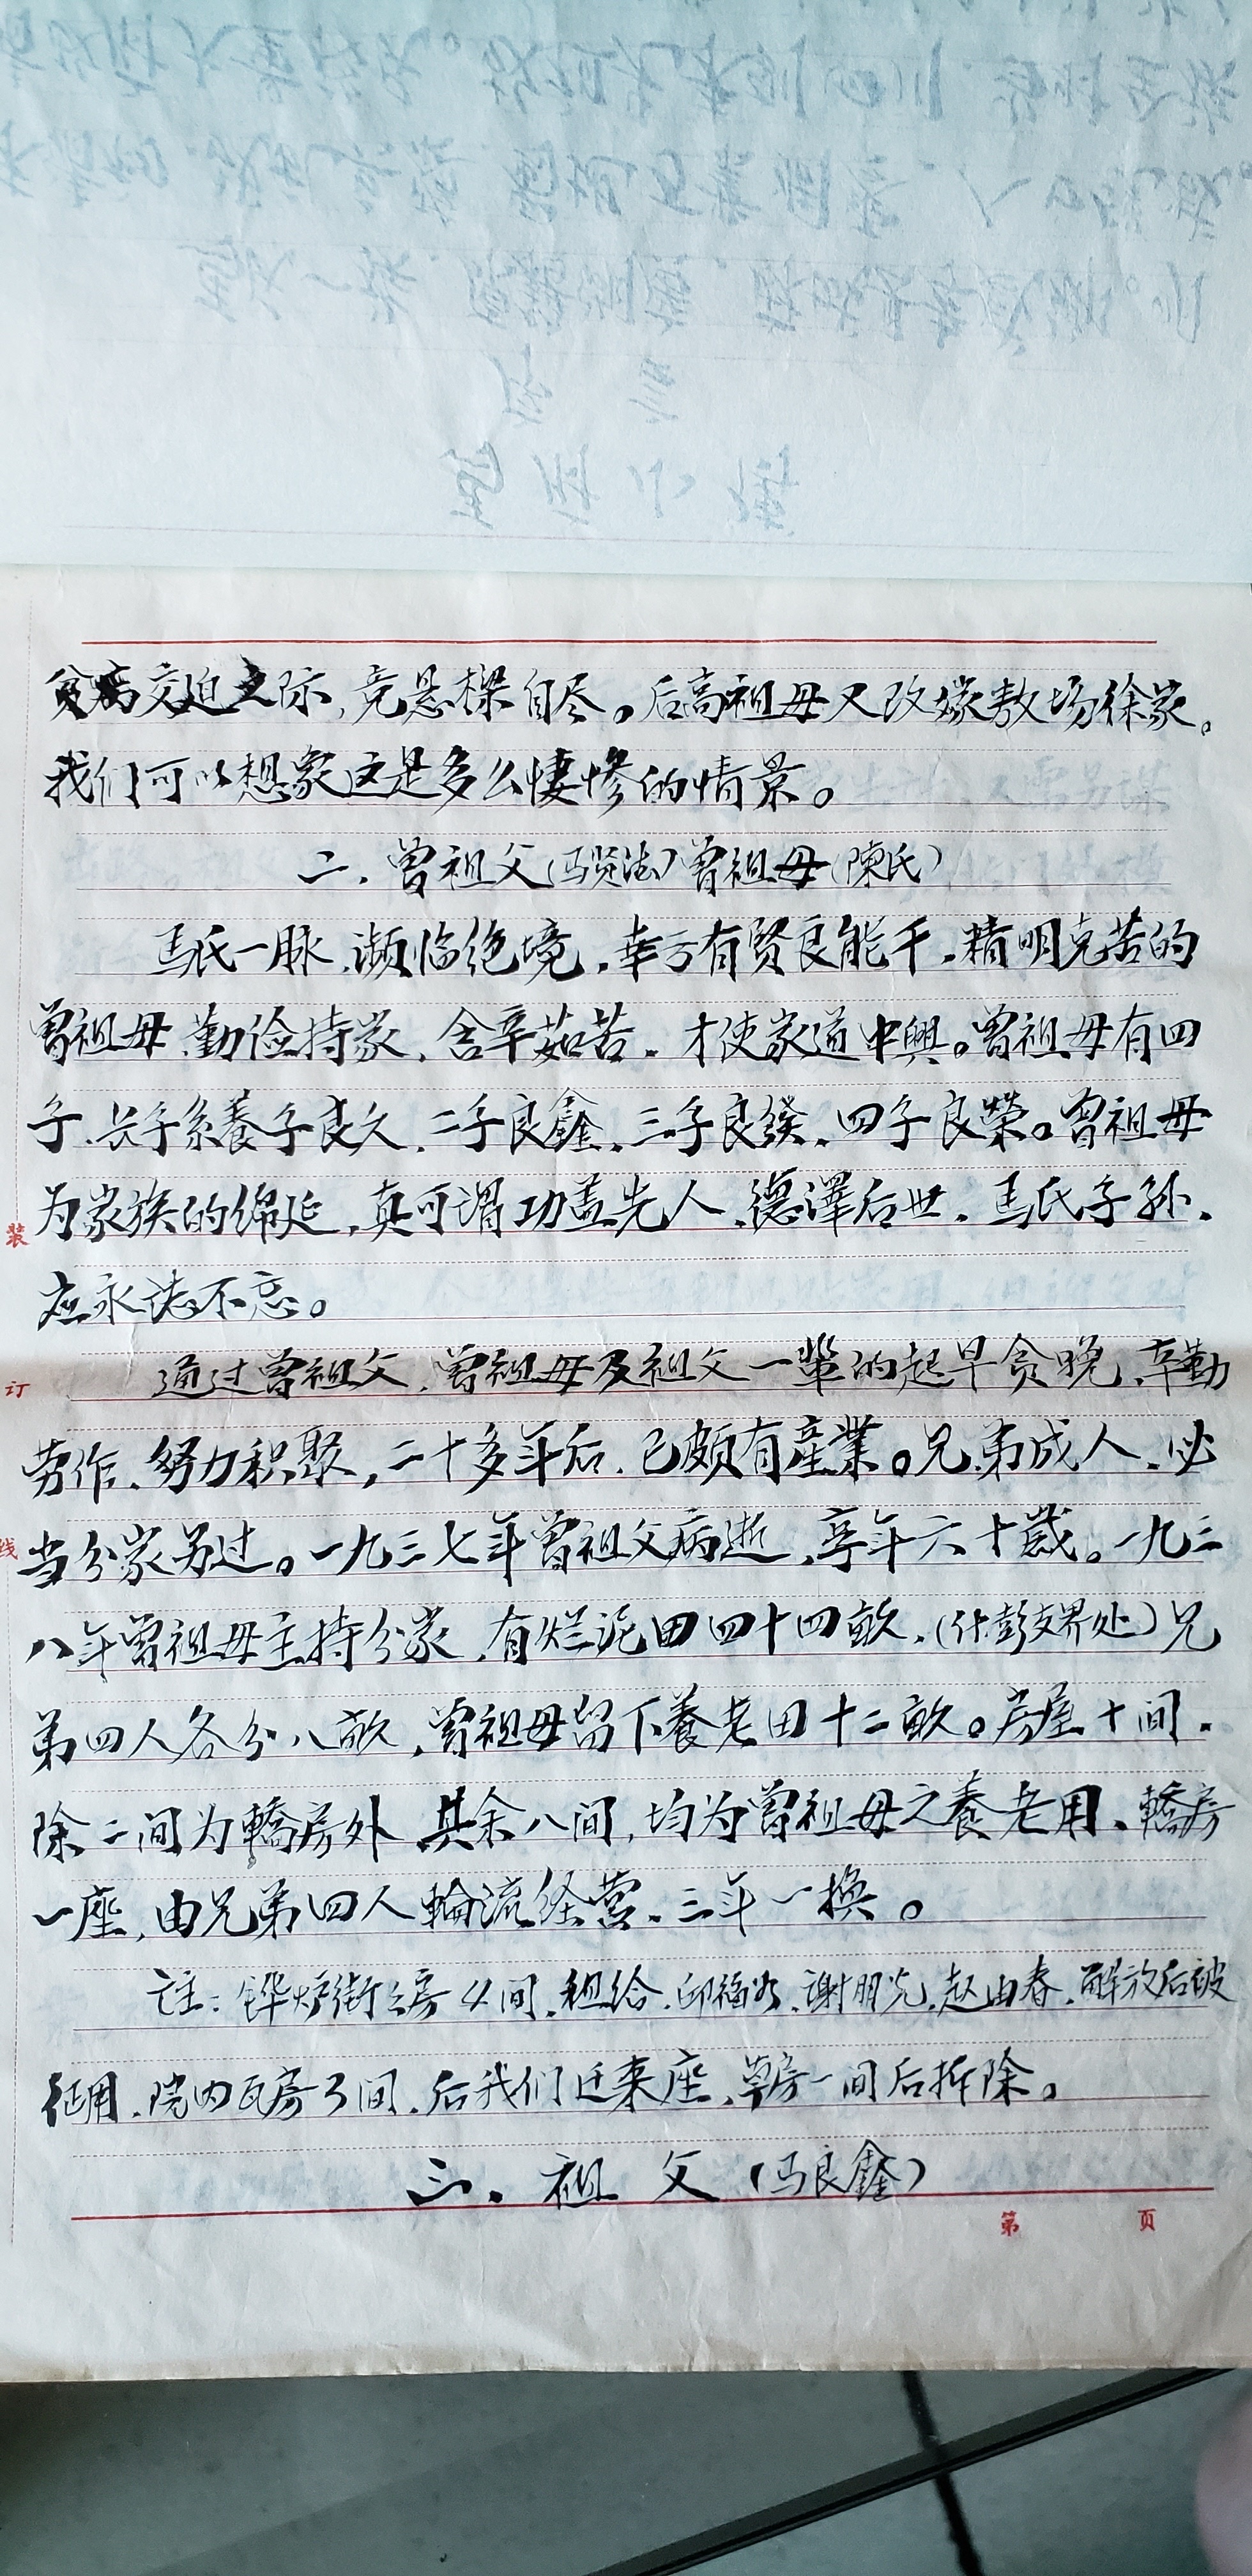 贫病交迫之际,竟悬樑自尽。后高祖母又改嫁敖场徐家。
我们可以想象这是多么悽惨的情景。
二.曾祖父(马贤法)曾祖母(陳氏)
马氏一脉.濒临绝境,幸亏有贤良能干.精明克苦的
曾祖母.勤俭持家.含辛茹苦.才使家道中興。曾祖母有四
子.长子系養子良久.二子良鑫.三子良發.四子良榮。曾祖母
为家族的绵延,真可谓功盖先人.德澤后世.马氏子孙.
应永誌不忘。
装
通过曾祖父.曾祖母及祖父一輩的起早贪晚.辛勤
订
劳作.努力积聚,二十多年后.已颇有產業。兄弟成人.必
当分家另过。一九三七年曾祖父病逝,享年六十歲。一九三
线
八年曾祖母主持分家.有烂泥田四十四畝.(什彭交界处)兄
弟四人各分八畝,曾祖母留下養老田十二畝。房屋十间.
除二间为轎房外.其余八间,均为曾祖母之養老用、轎房
一座,由兄弟四人輪流经营.三年一换。
註:铧炉街之房4间.租给.邱福.谢朋光.赵由春.解放后被
征用.院内瓦房3间.后我们迁来座.草房一间后拆除。
三.祖父(马良鑫)
第 页